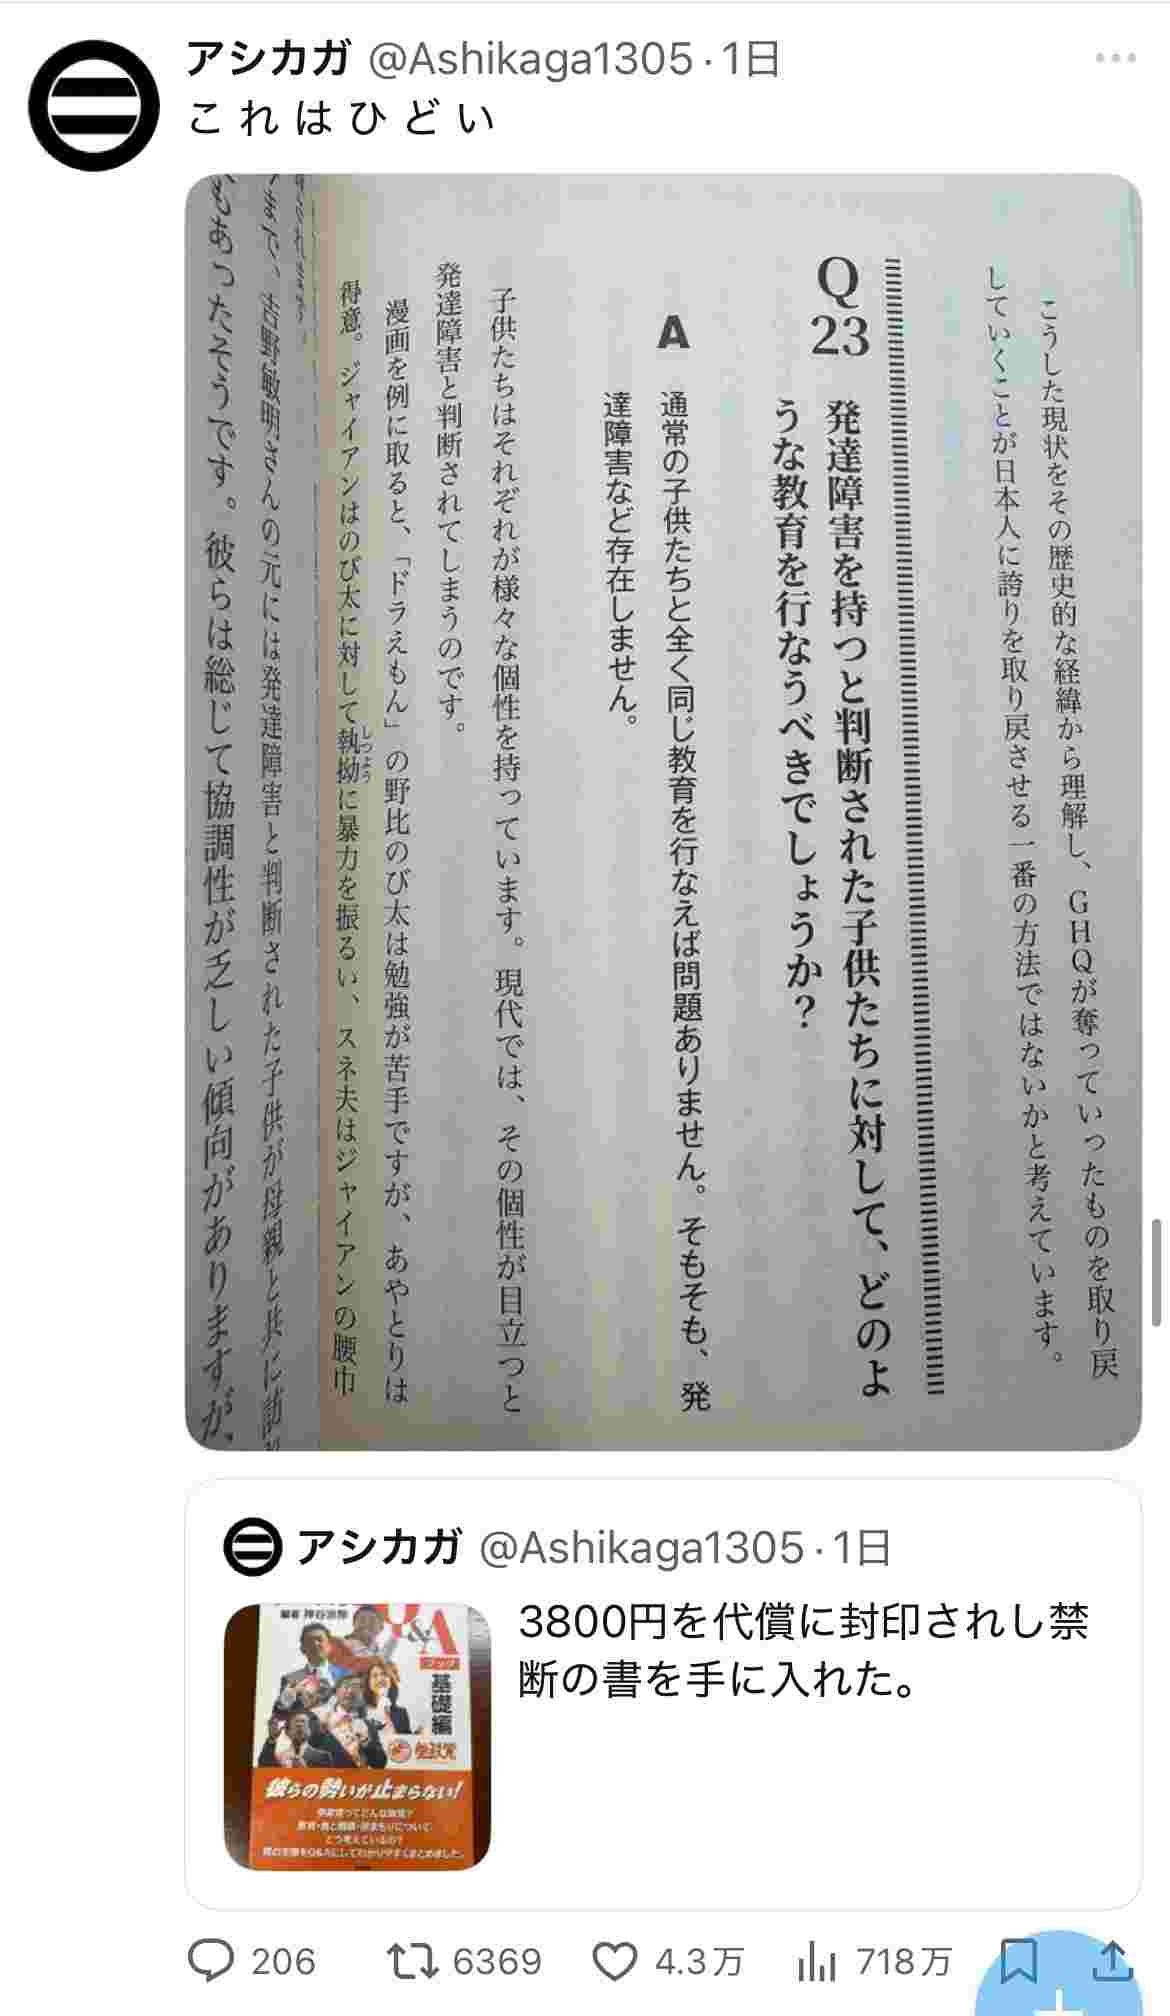 アシカガ @Ashikaga1305・1日
これはひどい
こうした現状をその歴史的な経緯から理解し、GHQが奪っていったものを取り戻
していくことが日本人に誇りを取り戻させる一番の方法ではないかと考えています。
Q23 発達障害を持つと判断された子供たちに対して、どのよ
うな教育を行なうべきでしょうか?
A 通常の子供たちと全く同じ教育を行なえば問題ありません。そもそも、発
達障害など存在しません。
子供たちはそれぞれが様々な個性を持っています。現代では、その個性が目立つと
発達障害と判断されてしまうのです。
漫画を例に取ると、「ドラえもん」の野比のび太は勉強が苦手ですが、あやとりは
得意。ジャイアンはのび太に対して執拗に暴力を振るい、スネ夫はジャイアンの腰巾
しつよう
まで、吉野敏明さんの元には発達障害と判断された子供が母親と共に訪
もあったそうです。彼らは総じて協調性が乏しい傾向がありますが、
アシカガ @Ashikaga1305・1日
3800円を代償に封印されし禁
断の書を手に入れた。
編著 神谷宗幣
Q&A
基礎編
参政党
彼らの勢いが止まらない!
206 6369 4.3万 718万